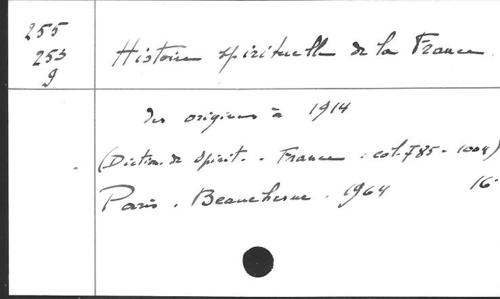 255
253
9
Histoire spirituelle de la France.
des origines à 1914
(Diction. de Spirit. - France : col. 785 - 1004)
Paris. Beauchesne. 1964 16°